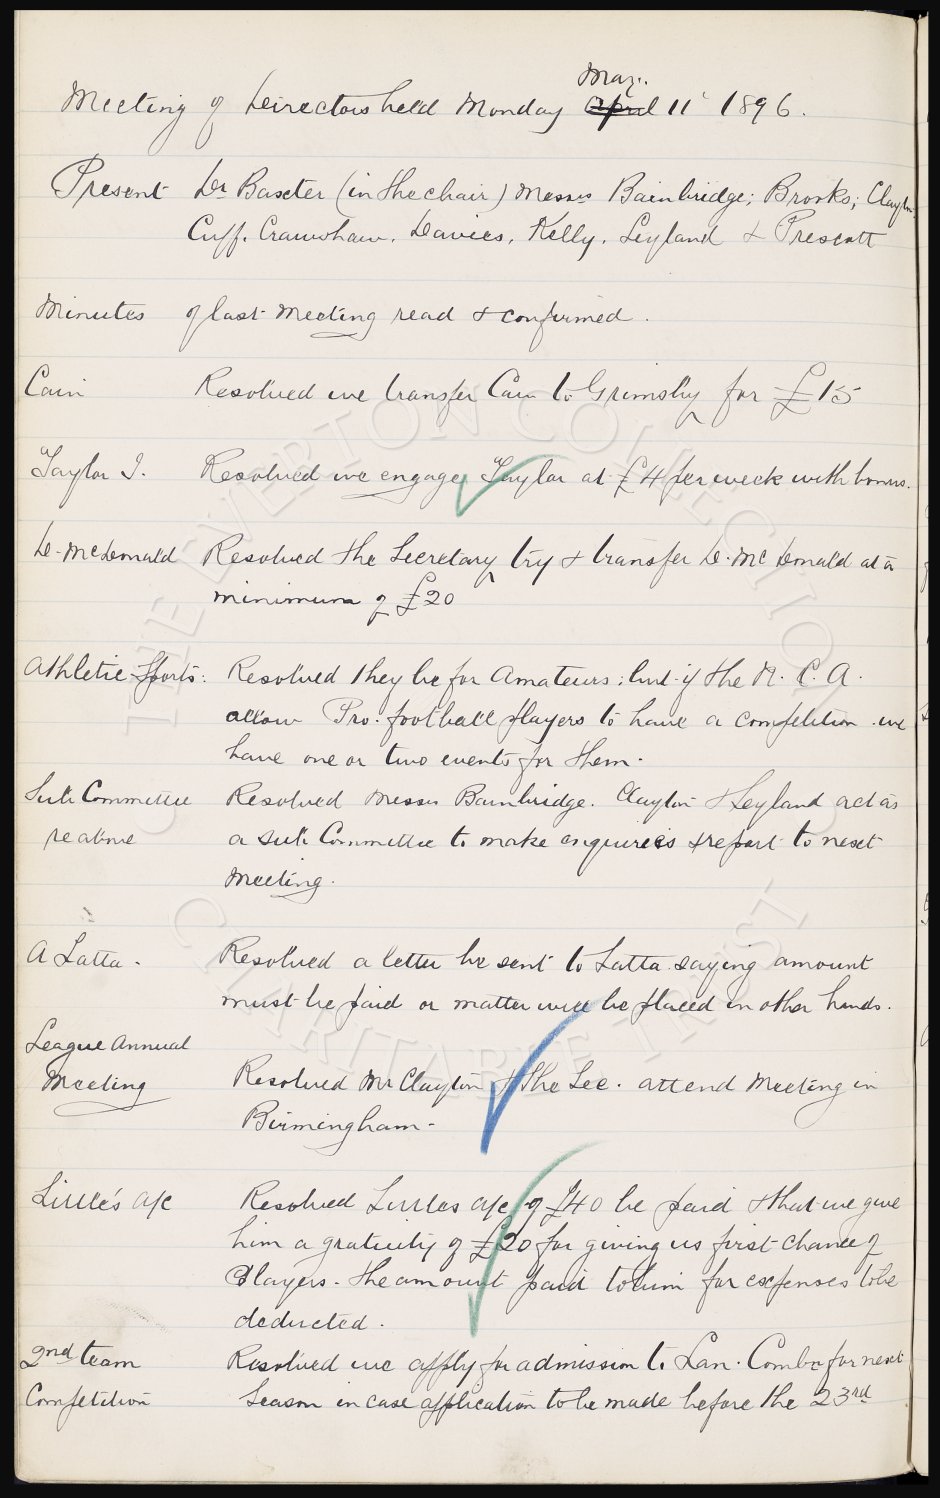 May.
Meeting of Directors held Monday April 11th 1896.
Present Dr Baxter (in the chair) Messrs Bainbridge; Brooks; Clayton.
Cuff. Crawshaw. Davies. Kelly. Leyland & Prescott
Minutes of last Meeting read & confirmed.
Cain Resolved we transfer Cain to Grimsby for £15
Taylor J. Resolved we engage Taylor at £4 per week with bonus.
D. McDonald Resolved the Secretary try & transfer D. McDonald at a
minimum of £20
Athletic Sports: Resolved they be for Amateurs; but if the N. C. A.
allow Pro. football players to have a competition we
have one or two events for them.
Sub Committee Resolved Messrs Bainbridge. Clayton & Leyland act as
re above a Sub Committee to make enquiries & report to next
Meeting.
A Latta - Resolved a letter be sent to Latta saying amount
must be paid or matter will be placed in other hands.
League Annual
Meeting Resolved Mr Clayton & the Sec. attend Meeting in
Birmingham -
Little's a/c Resolved Littles a/c of £40 be paid & that we give
him a gratuity of £20 for giving us first chance of
Players - the amount paid to him for expenses to be
deducted.
2nd team Resolved we apply for admission to Lan. Comb. for next
Competition Season in case application to be made before the 23rd
THE EVERTON COLLECTION
CHARITABLE TRUST